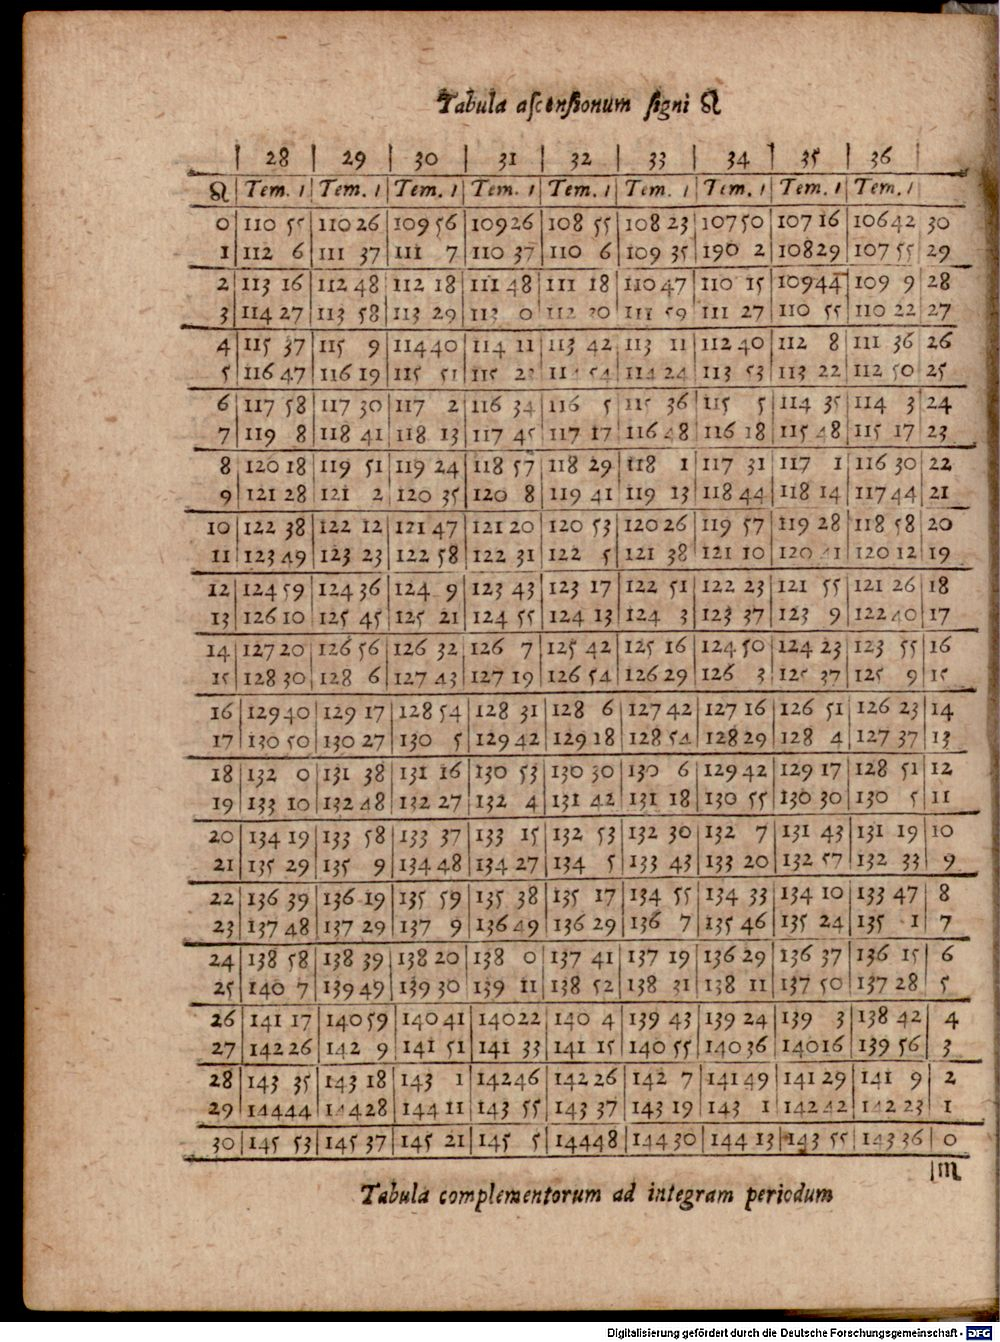 Tabula aſcenſionum ſigni ♌
28 29 30 31 32 33 34 35 36
♌ Tem. ı Tem. ı Tem. ı Tem. ı Tem. ı Tem. ı Tem. ı Tem. ı Tem. ı
0 110 55 110 26 109 56 109 26 108 55 108 23 107 50 107 16 106 42 30
1 112 6 111 37 111 7 110 37 110 6 109 35 190 2 108 29 107 55 29
2 113 16 112 48 112 18 111 48 111 18 110 47 110 15 109 44 109 9 28
3 114 27 113 58 113 29 113 0 112 30 111 59 111 27 110 55 110 22 27
4 115 37 115 9 114 40 114 11 113 42 113 11 112 40 112 8 111 36 26
5 116 47 116 19 115 51 115 23 114 54 114 24 113 53 113 22 112 50 25
6 117 58 117 30 117 2 116 34 116 5 115 36 115 5 114 35 114 3 24
7 119 8 118 41 118 13 117 45 117 17 116 48 116 18 115 48 115 17 23
8 120 18 119 51 119 24 118 57 118 29 118 1 117 31 117 1 116 30 22
9 121 28 121 2 120 35 120 8 119 41 119 13 118 44 118 14 117 44 21
10 122 38 122 12 121 47 121 20 120 53 120 26 119 57 119 28 118 58 20
11 123 49 123 23 122 58 122 31 122 5 121 38 121 10 120 41 120 12 19
12 124 59 124 36 124 9 123 43 123 17 122 51 122 23 121 55 121 26 18
13 126 10 125 45 125 21 124 55 124 13 124 3 123 37 123 9 122 40 17
14 127 20 126 56 126 32 126 7 125 42 125 16 124 50 124 23 123 55 16
15 128 30 128 6 127 43 127 19 126 54 126 29 126 3 125 37 125 9 15
16 129 40 129 17 128 54 128 31 128 6 127 42 127 16 126 51 126 23 14
17 130 50 130 27 130 5 129 42 129 18 128 54 128 29 128 4 127 37 13
18 132 0 131 38 131 16 130 53 130 30 130 6 129 42 129 17 128 51 12
19 133 10 132 48 132 27 132 4 131 42 131 18 130 55 130 30 130 5 11
20 134 19 133 58 133 37 133 15 132 53 132 30 132 7 131 43 131 19 10
21 135 29 135 9 134 48 134 27 134 5 133 43 133 20 132 57 132 33 9
22 136 39 136 19 135 59 135 38 135 17 134 55 134 33 134 10 133 47 8
23 137 48 137 29 137 9 136 49 136 29 136 7 135 46 135 24 135 1 7
24 138 58 138 39 138 20 138 0 137 41 137 19 136 29 136 37 136 15 6
25 140 7 139 49 139 30 139 11 138 52 138 31 138 11 137 50 137 28 5
26 141 17 140 59 140 41 140 22 140 4 139 43 139 24 139 3 138 42 4
27 142 26 142 9 141 51 141 33 141 15 140 55 140 36 140 16 139 56 3
28 143 35 143 18 143 1 142 46 142 26 142 7 141 49 141 29 141 9 2
29 144 44 144 28 144 11 143 55 143 37 143 19 143 1 142 42 142 23 1
30 145 53 145 37 145 21 145 5 144 48 144 30 144 13 143 55 143 36 0
♏
Tabula complementorum ad integram periodum
Digitalisierung gefördert durch die Deutsche Forschungsgemeinschaft - DFG